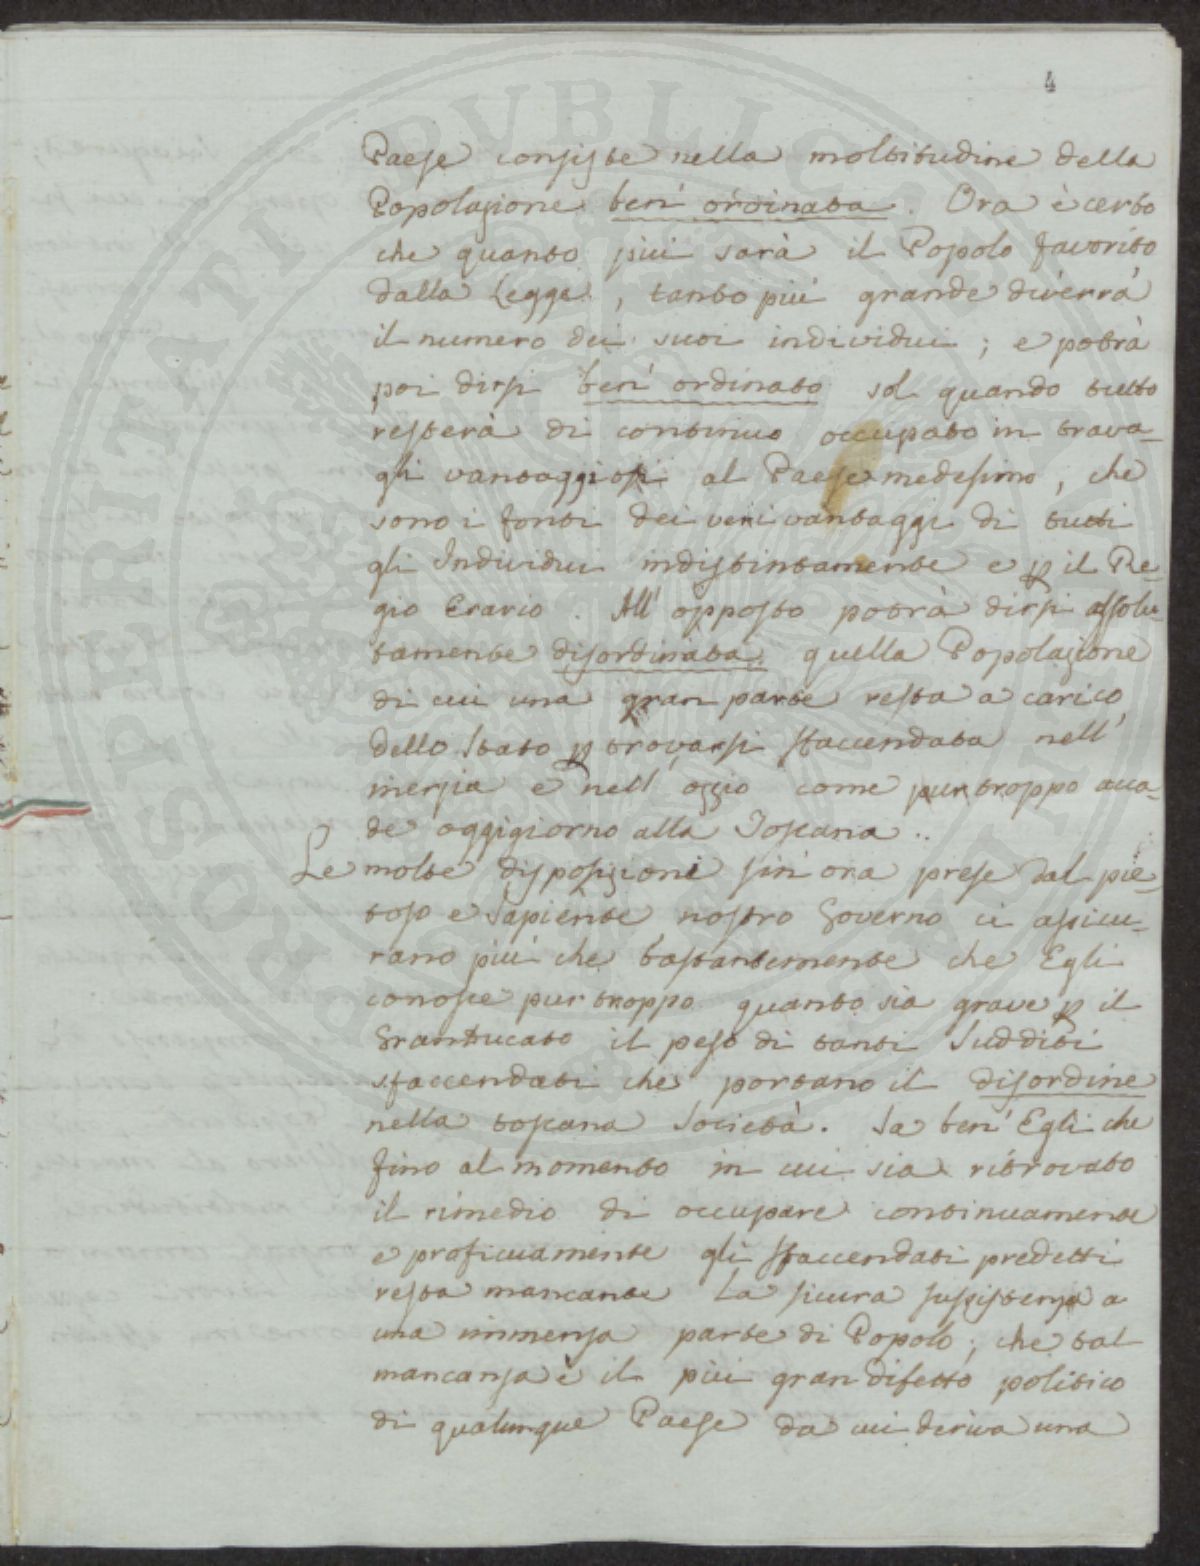 4
Paese consiste nella moltitudine della
Popolazione ben' ordinata. Ora è certo
che quanto più sarà il Popolo favorito
dalla Legge, tanto più grande diverrà
il numero dei suoi individui; e potrà
poi dirsi ben' ordinato sol quando tutto
resterà di continuo occupato in trava-
gli vantaggiosi al Paese medesimo, che
sono i fonti dei veri vantaggi di tutti
gli Individui indistintamente e ꝑ il Re-
gio Erario. All' opposto potrà dirsi assolu-
tamente disordinata quella Popolazione
di cui una gran parte resta a carico
dello Stato ꝑ trovarsi sfaccendata nell'
inerzia e nell' ozzio come pur troppo acca-
de oggigiorno alla Toscana..
Le molte disposizioni sin' ora prese dal pie-
toso e Sapiente nostro Governo ci assicu-
rano più che bastantemente che Egli
conosce pur troppo quanto sia grave ꝑ il
Granducato il peso di tanti Sudditi
sfaccendati che portano il disordine
nella toscana Società. Sa ben' Egli che
fino al momento in cui sia ritrovato
il rimedio di occupare continuamente
e proficuamente gli sfaccendati predetti
resta mancante la sicura sussistenza a
una immensa parte di Popolo; che tal
mancanza è il più gran difetto politico
di qualunque Paese da cui deriva una
PROSPERITATI PUBLICAE